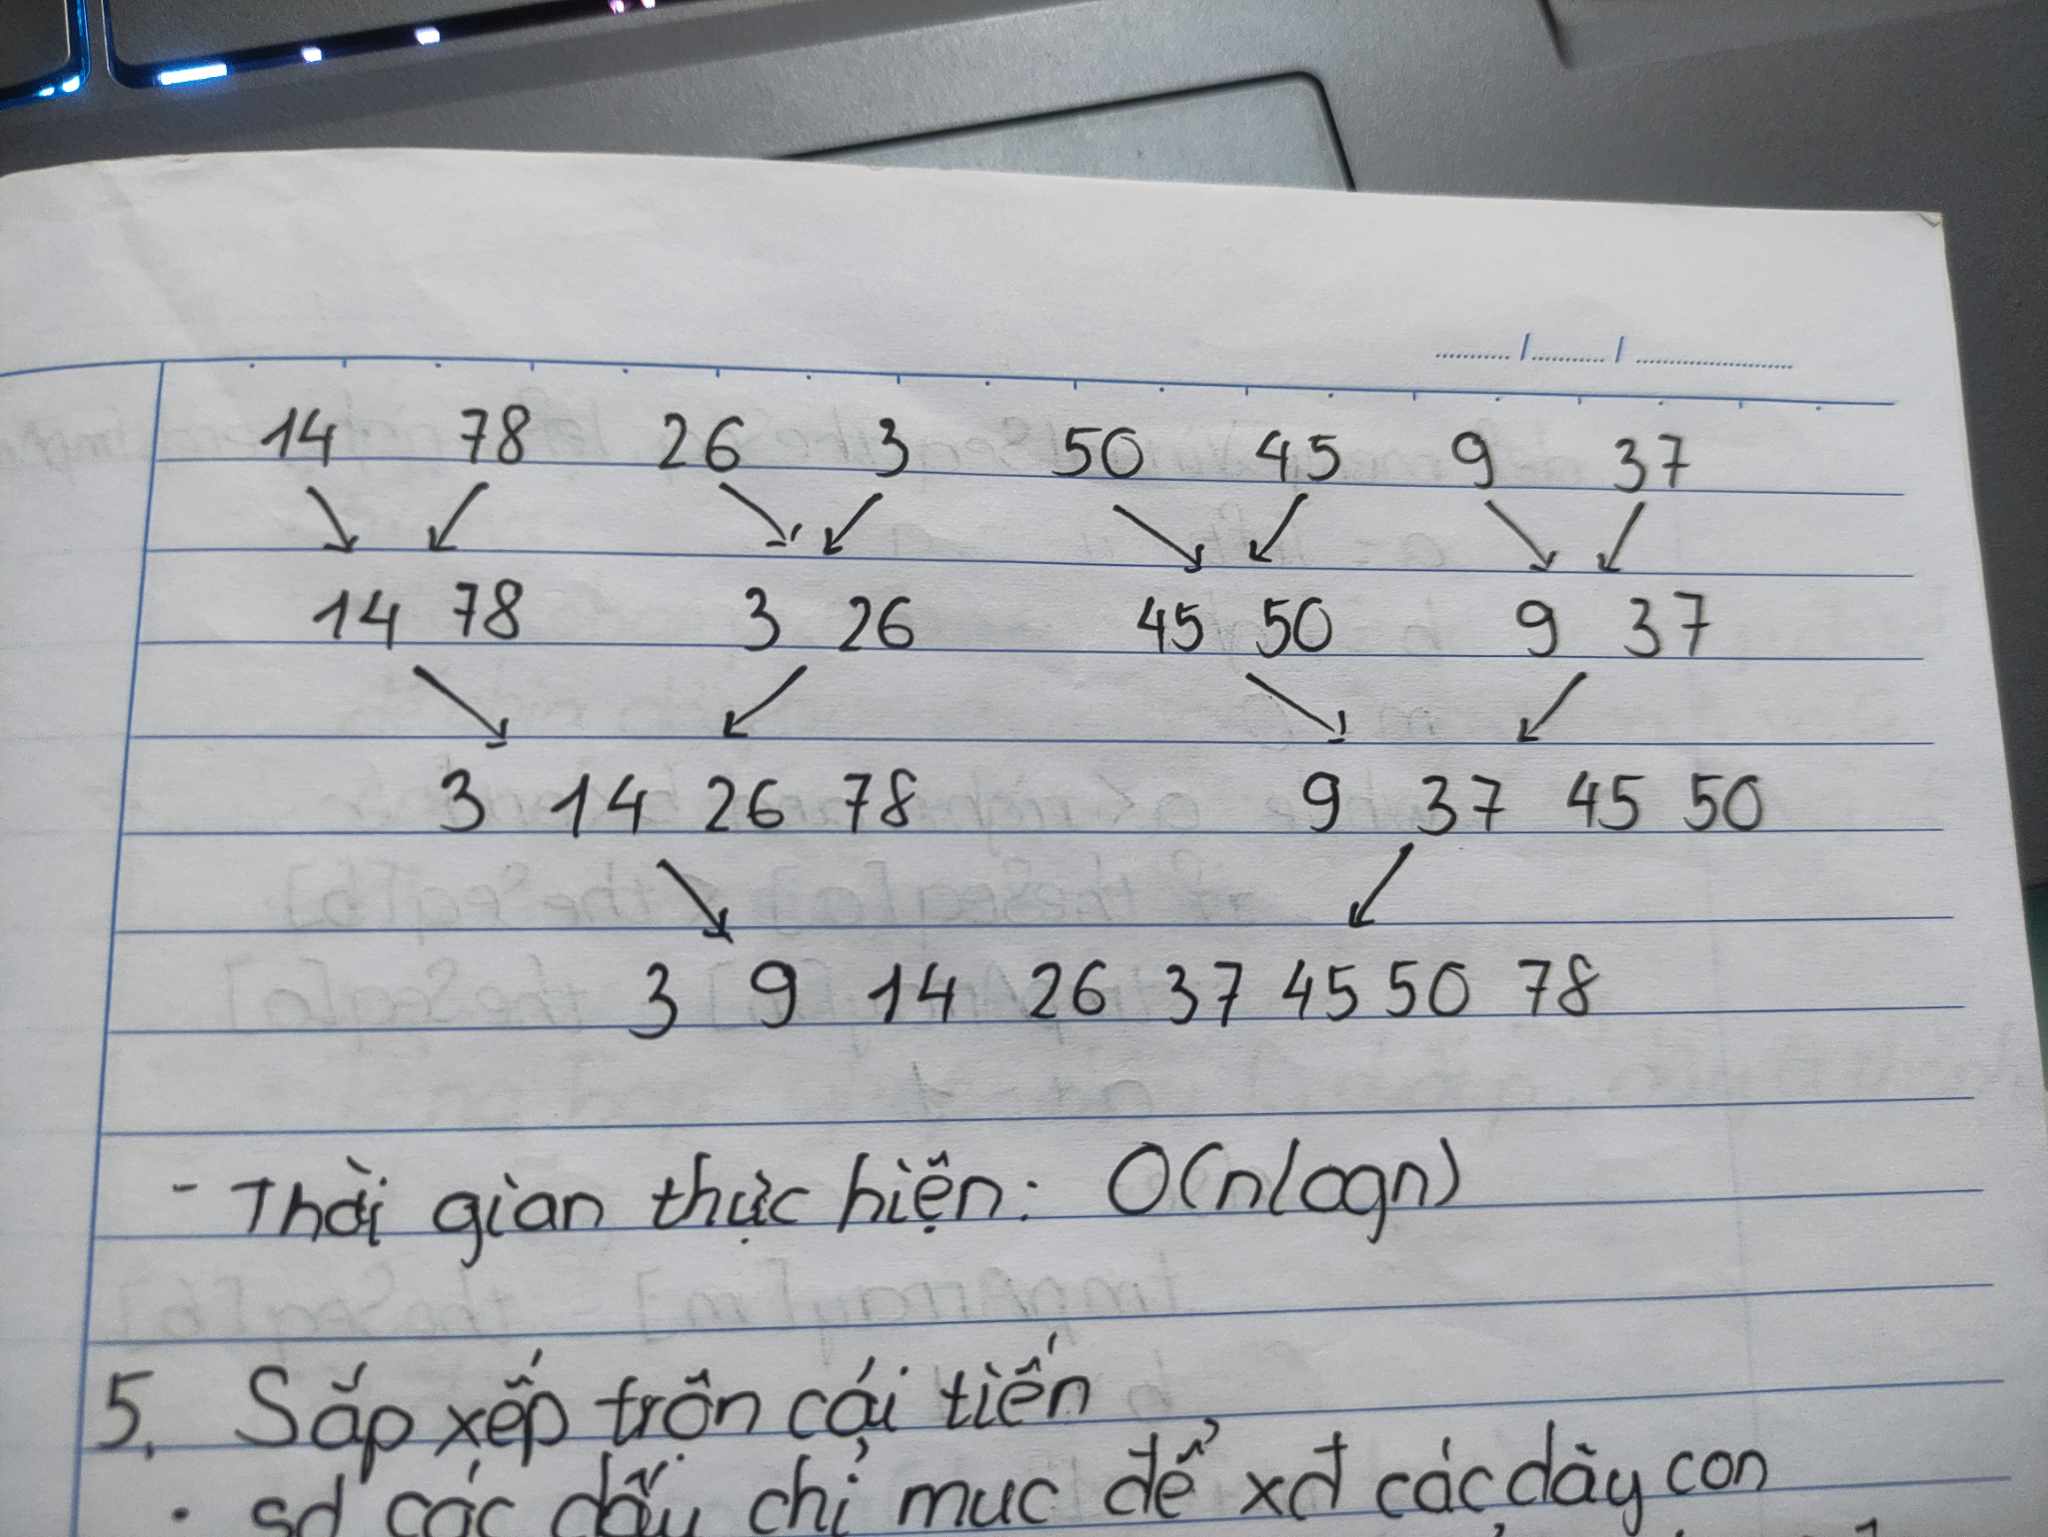 14 78 26 3 50 45 9 37
14 78 3 26 45 50 9 37
3 14 26 78 9 37 45 50
3 9 14 26 37 45 50 78
- Thời gian thực hiện: O(nlogn)
5. Sắp xếp trộn cải tiến
• sd các dấu chỉ mục để xđ các dãy con